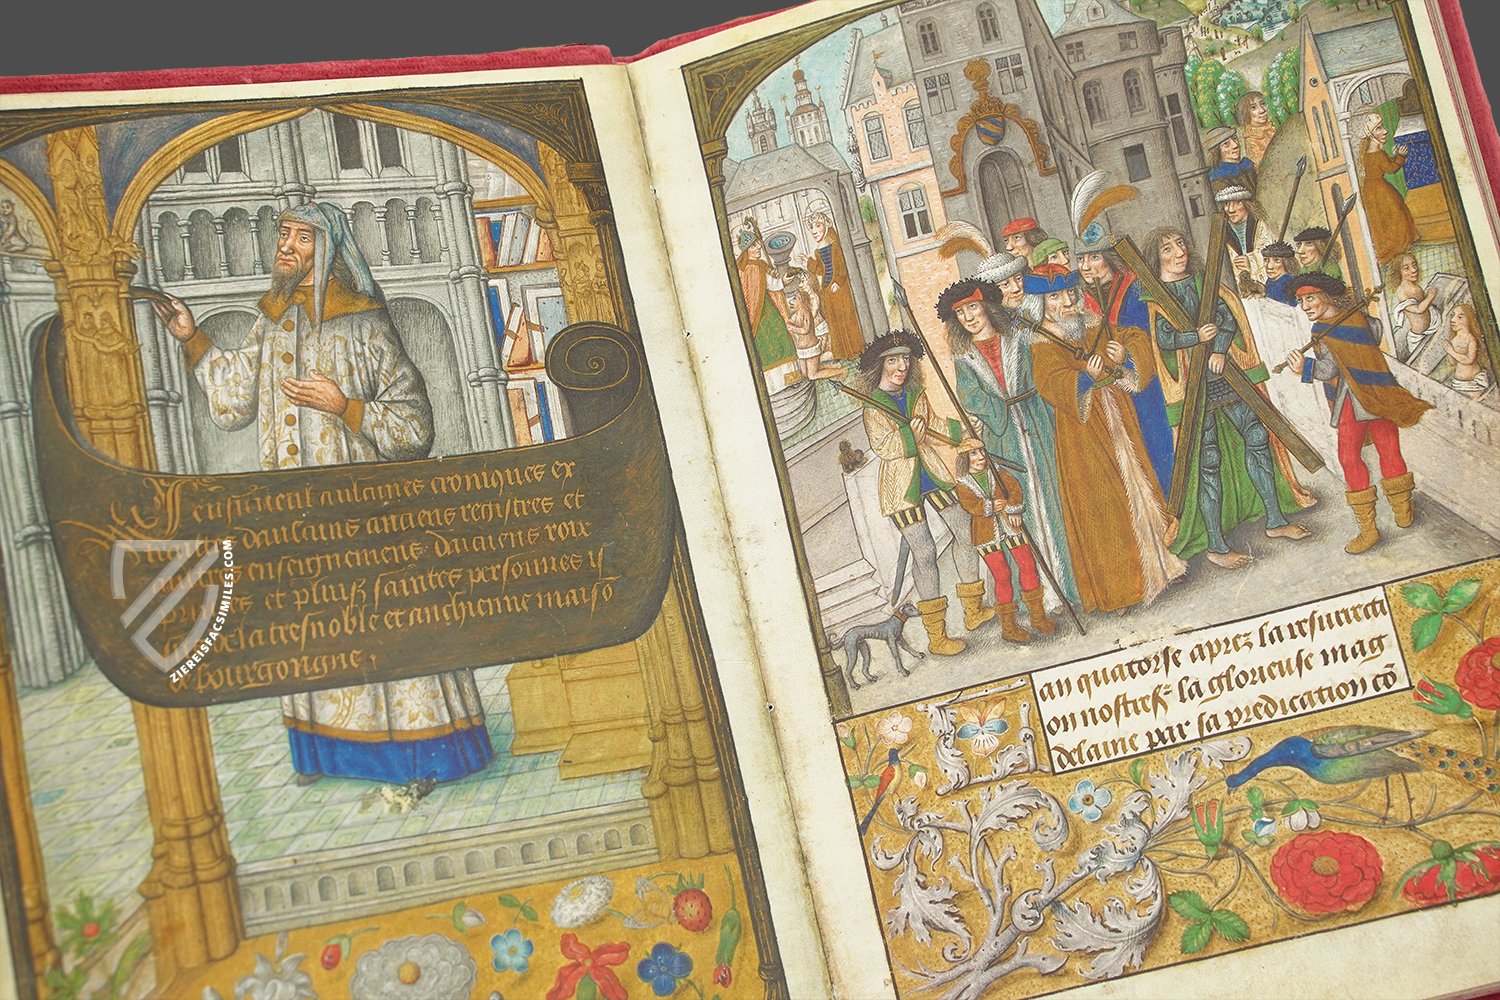 J ensuivent aulcunes croniques ex
daulcuns anciens registres et
enseignemens daciens roix
et pluisrs saintes personnes is
de la tresnoble et anchienne maisō
de bourgongne.
ZIEREISFACSIMILES.COM
an quatorse aprez la resurrecti
on nostres.r la glorieuse mag
delaine par sa predication cō